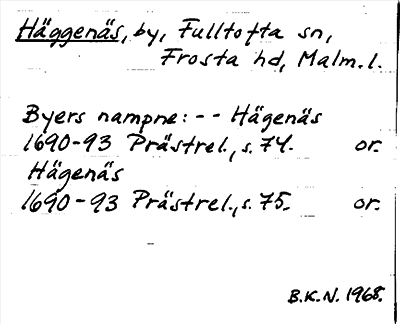 Häggenäs, by, Fulltofta sn,
Frosta hd, Malm. l.
Byers nampne: - - Hägenäs
1690-93 Prästrel., s. 74. or.
Hägenäs
1690-93 Prästrel., s. 75. or.
B.K.N. 1968.